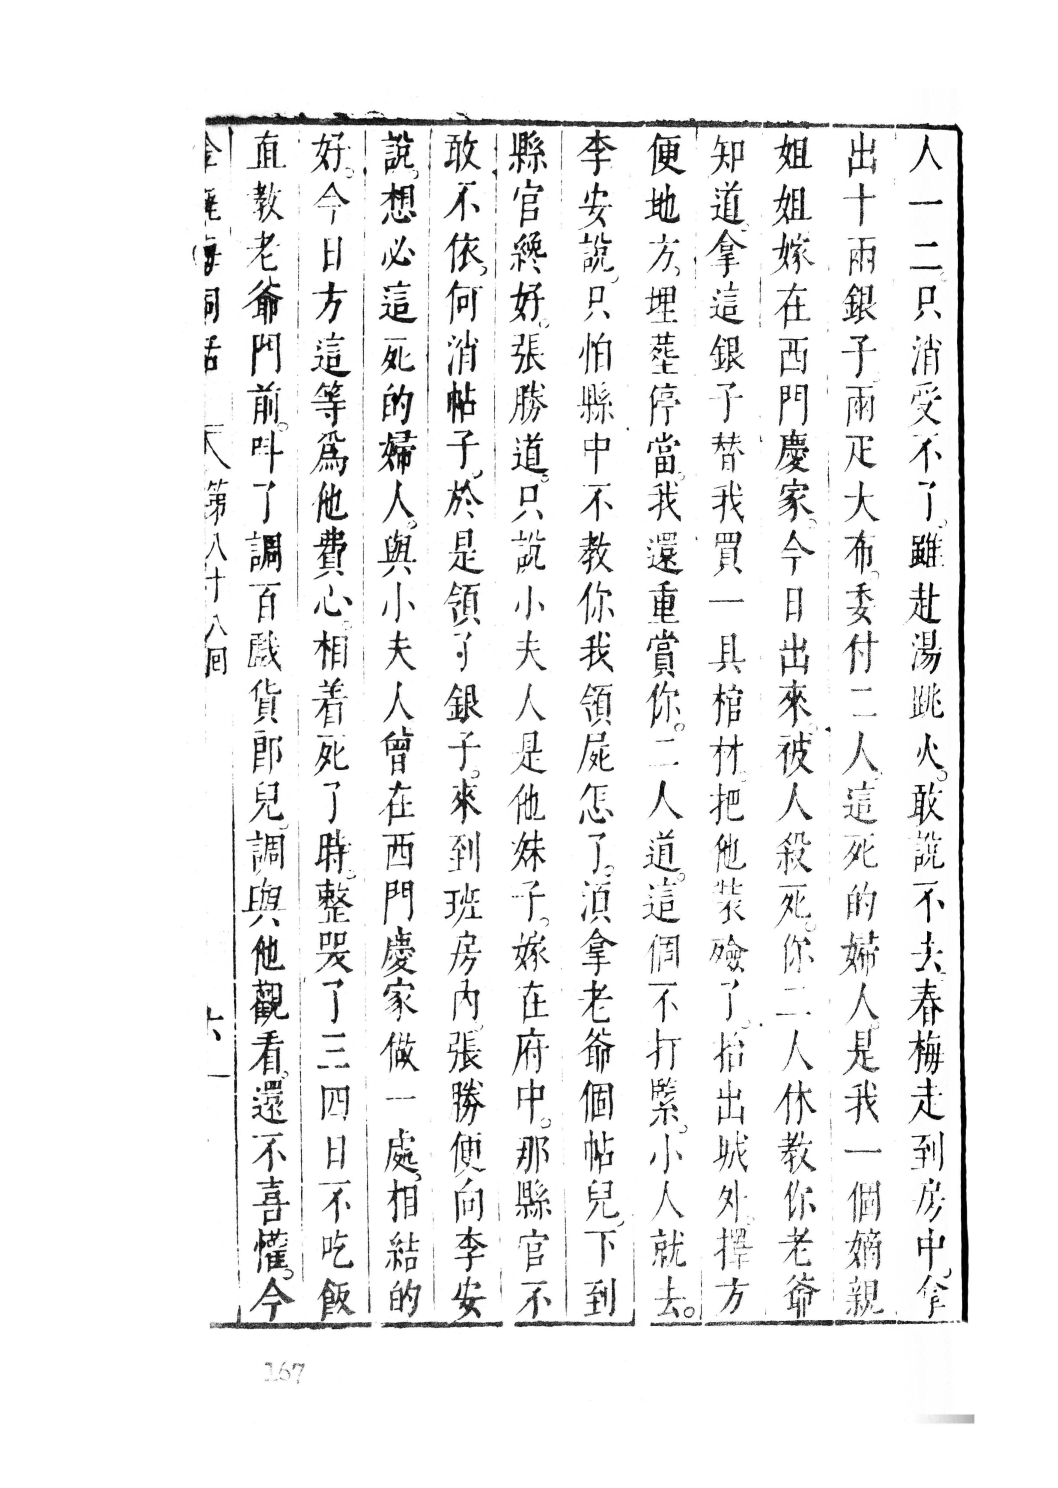 人一二。只消受不了。雖赴湯跳火。敢說不去。春梅走到房中。拿
出十兩銀子。兩疋大布。委付二人。這死的婦人。是我一個嫡親
姐姐。嫁在西門慶家。今日出來。被人殺死。你二人休教你老爺
知道。拿這銀子替我買一具棺材。把他裝殮了。抬出城外。擇方
便地方。埋塟停當。我還重賞你。二人道。這個不打緊。小人就去。
李安說。只怕縣中不教你我領屍怎了。湏拿老爺個帖兒。下到
縣官纔好。張勝道。只說小夫人是他妹子。嫁在府中。那縣官不
敢不依。何消帖子。於是領了銀子。來到班房內。張勝便向李安
說。想必這死的婦人。與小夫人曾在西門慶家做一處。相結的
好。今日方這等爲他費心。相着死了時。整哭了三四日不吃飯
直教老爺門前。叫了調百戲貨郎兒。調與他觀看。還不喜懽。今
金瓶梅詞話 第八十八回 六
167